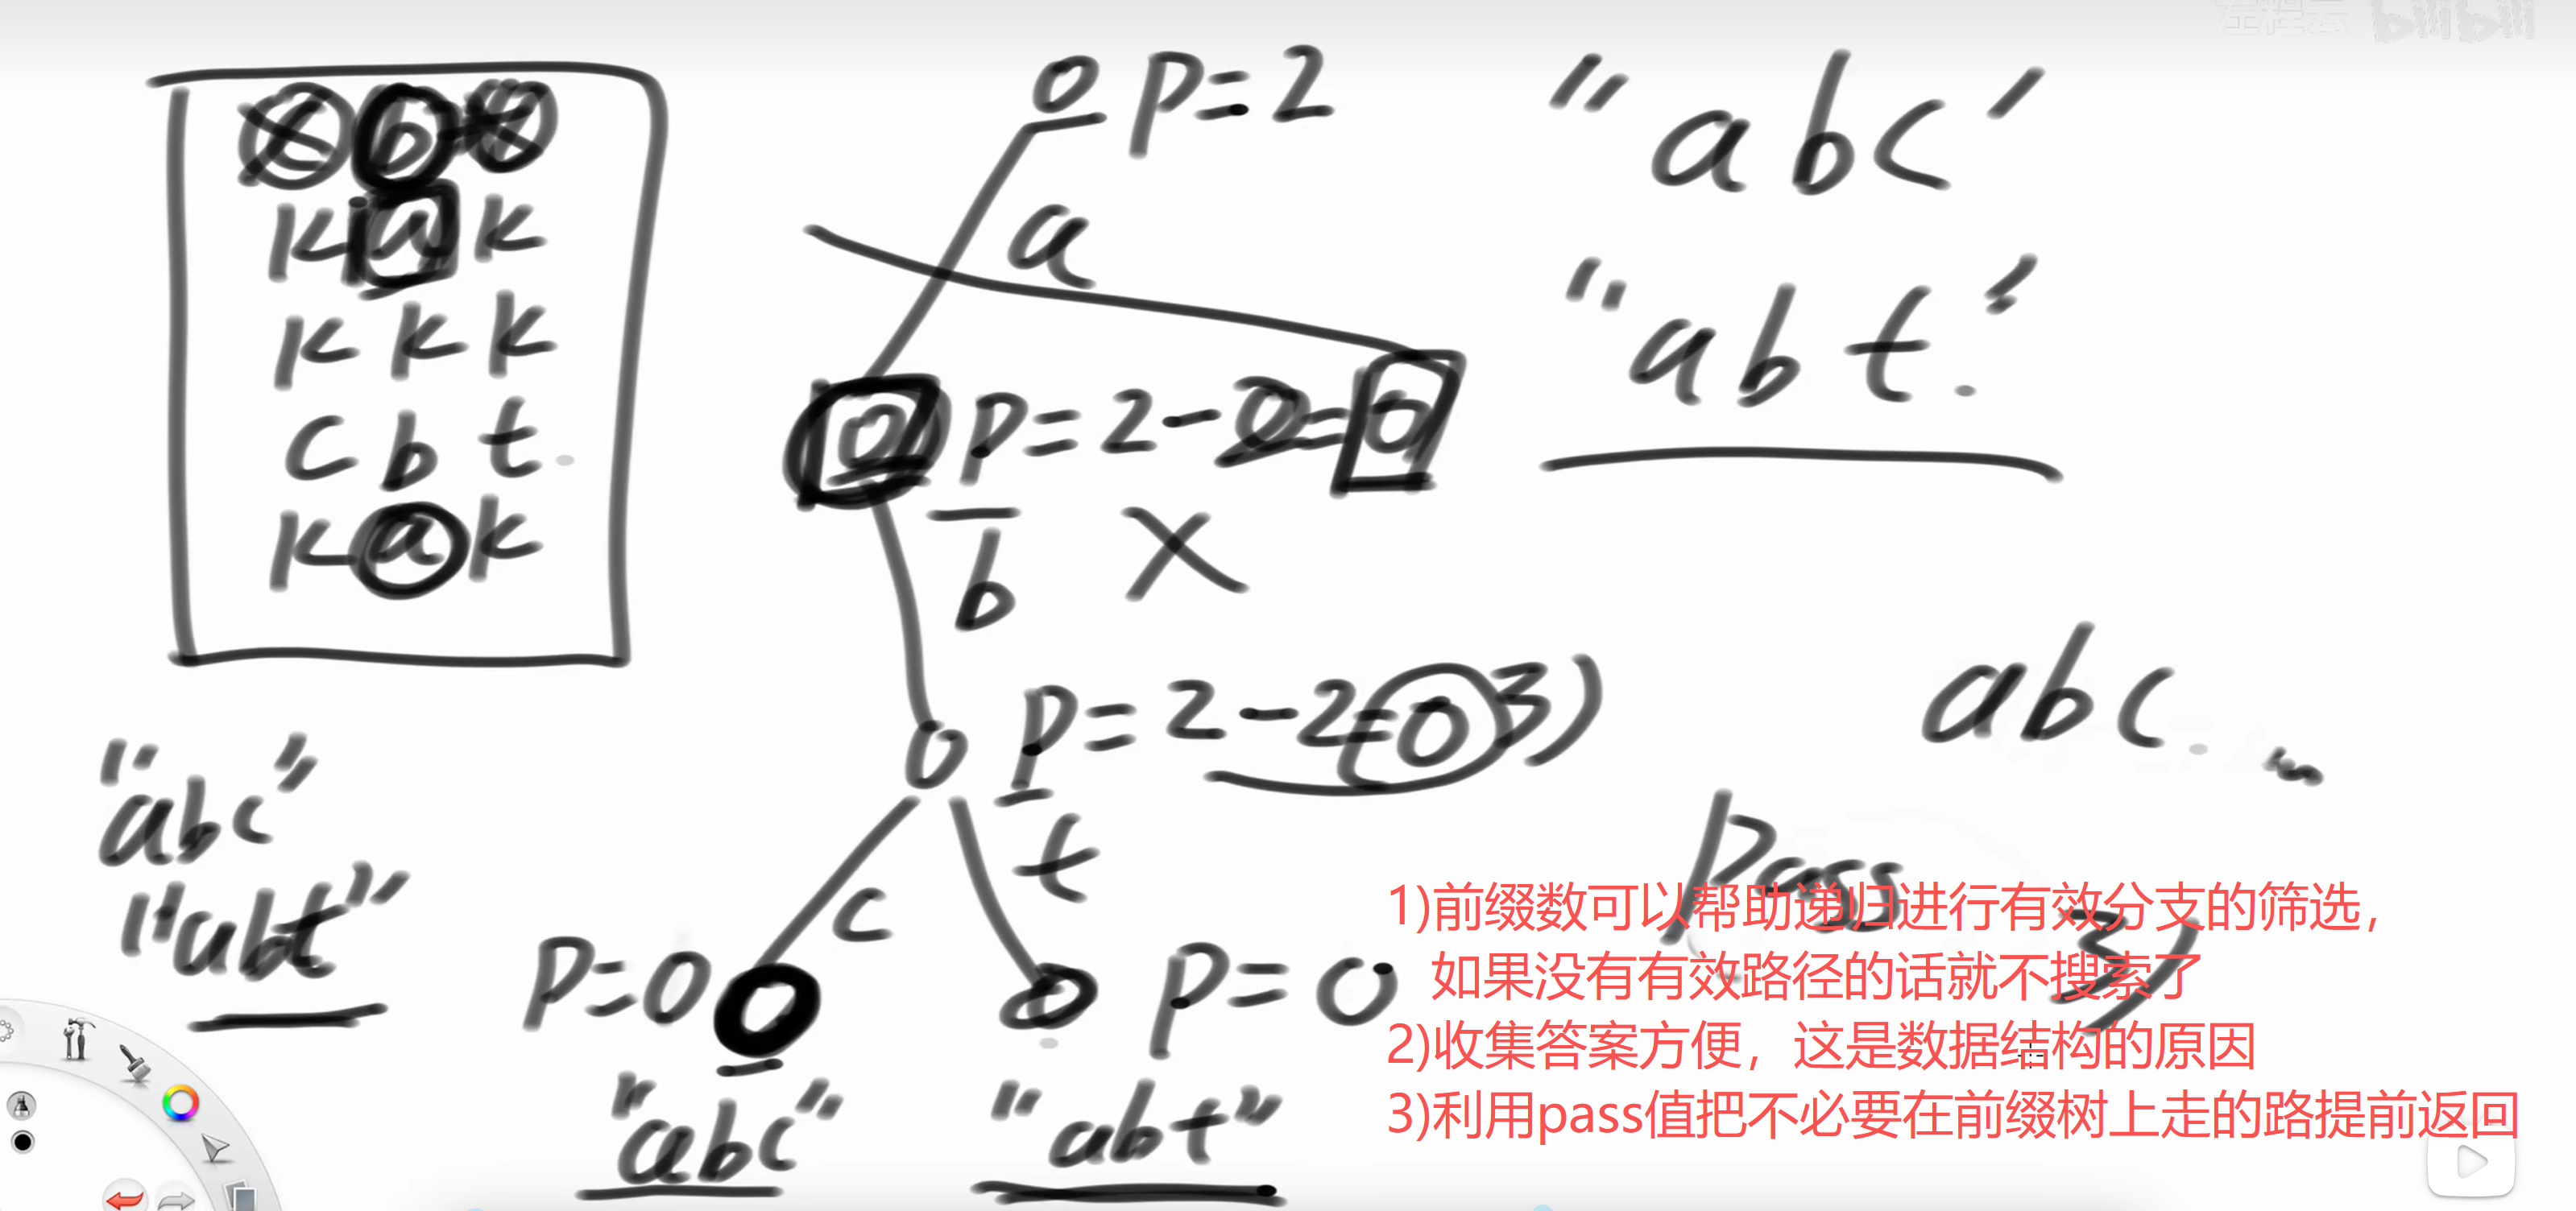 左程云 bilibili
k a k
k k k
c b t
k a k
"abc"
"abt"
o p=2
a
p=2-0=0
b X
p=2-2=0 3)
c t
p=0 p=0
"abc" "abt"
"abc'
"abt."
abc...
pass
3)
1)前缀数可以帮助递归进行有效分支的筛选，
如果没有有效路径的话就不搜索了
2)收集答案方便，这是数据结构的原因
3)利用pass值把不必要在前缀树上走的路提前返回